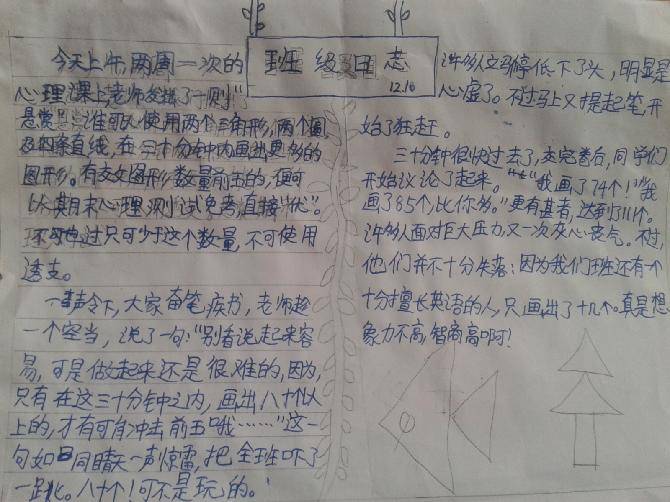 班级日志
12.10
今天上午,两周一次的
心理课上,老师发操了一则"
悬赏":谁可以使用两个三角形,两个圆
及四条直线,在三十分钟内画出更多的
图形。有交图形数量前五的,便可
以"期末心理测试免考,直接'优'"。
不过只可少于这个数量,不可使用
透支。
一声令下,大家奋笔疾书,老师趁
一个空当,说了一句:"别看说起来容
易,可是做起来还是很难的,因为,
只有在这三十分钟之内,画出八十个以
上的,才有可能冲击前五哦……"这一
句如同晴天一声惊雷,把全班吓了
一跳。八十个!可不是玩的。
许多人立马停低下了头,明显是
心虚了。不过马上又提起笔,开
始了狂赶。
三十分钟很快过去了,交完卷后,同学们
开始议论了起来。"我画了74个!""我
画了85个,比你多。"更有甚者,达到了111个。
许多人面对巨大压力又一次灰心丧气。不过
他们并不十分失落:因为我们班还有一个
十分擅长英语的人,只画出了十几个。真是想
象力不高,智商高啊!